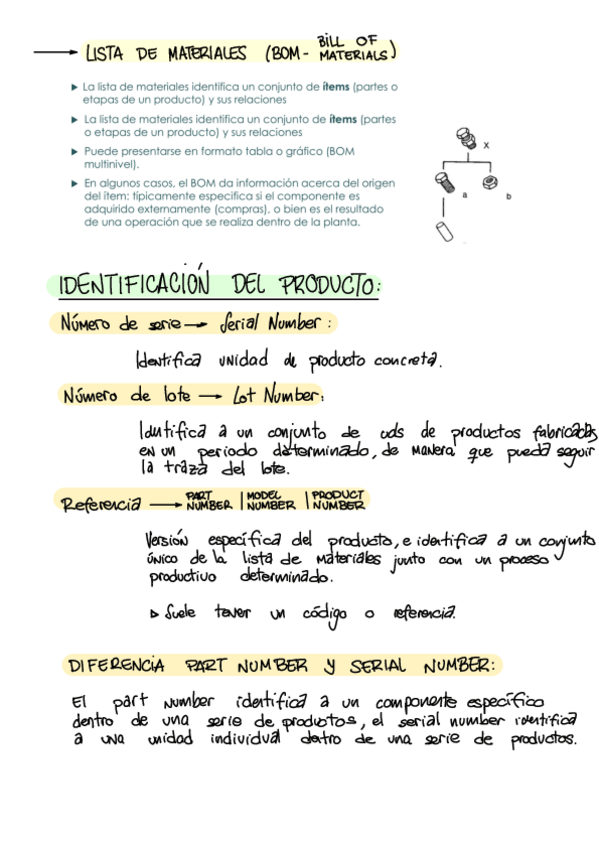 → LISTA DE MATERIALES (BOM - BILL OF MATERIALS)
▶ La lista de materiales identifica un conjunto de ítems (partes o
etapas de un producto) y sus relaciones
▶ La lista de materiales identifica un conjunto de ítems (partes
o etapas de un producto) y sus relaciones
▶ Puede presentarse en formato tabla o gráfico (BOM
multinivel).
▶ En algunos casos, el BOM da información acerca del origen
del ítem: típicamente especifica si el componente es
adquirido externamente (compras), o bien es el resultado
de una operación que se realiza dentro de la planta.
x
a b
IDENTIFICACIÓN DEL PRODUCTO:
Número de serie → Serial Number:
Identifica unidad de producto concreta.
Número de lote → Lot Number:
Idntifica a un conjunto de uds de productos fabricados
en un periodo determinado, de manera que pueda seguir
la traza del lote.
Referencia → PART NUMBER | MODEL NUMBER | PRODUCT NUMBER
Versión específica del producto, e identifica a un conjunto
único de la lista de materiales junto con un proceso
productivo determinado.
▷ Suele tener un código o referencia.
DIFERENCIA PART NUMBER Y SERIAL NUMBER:
El part number identifica a un componente específico
dentro de una serie de productos, el serial number identifica
a una unidad individual dentro de una serie de productos.